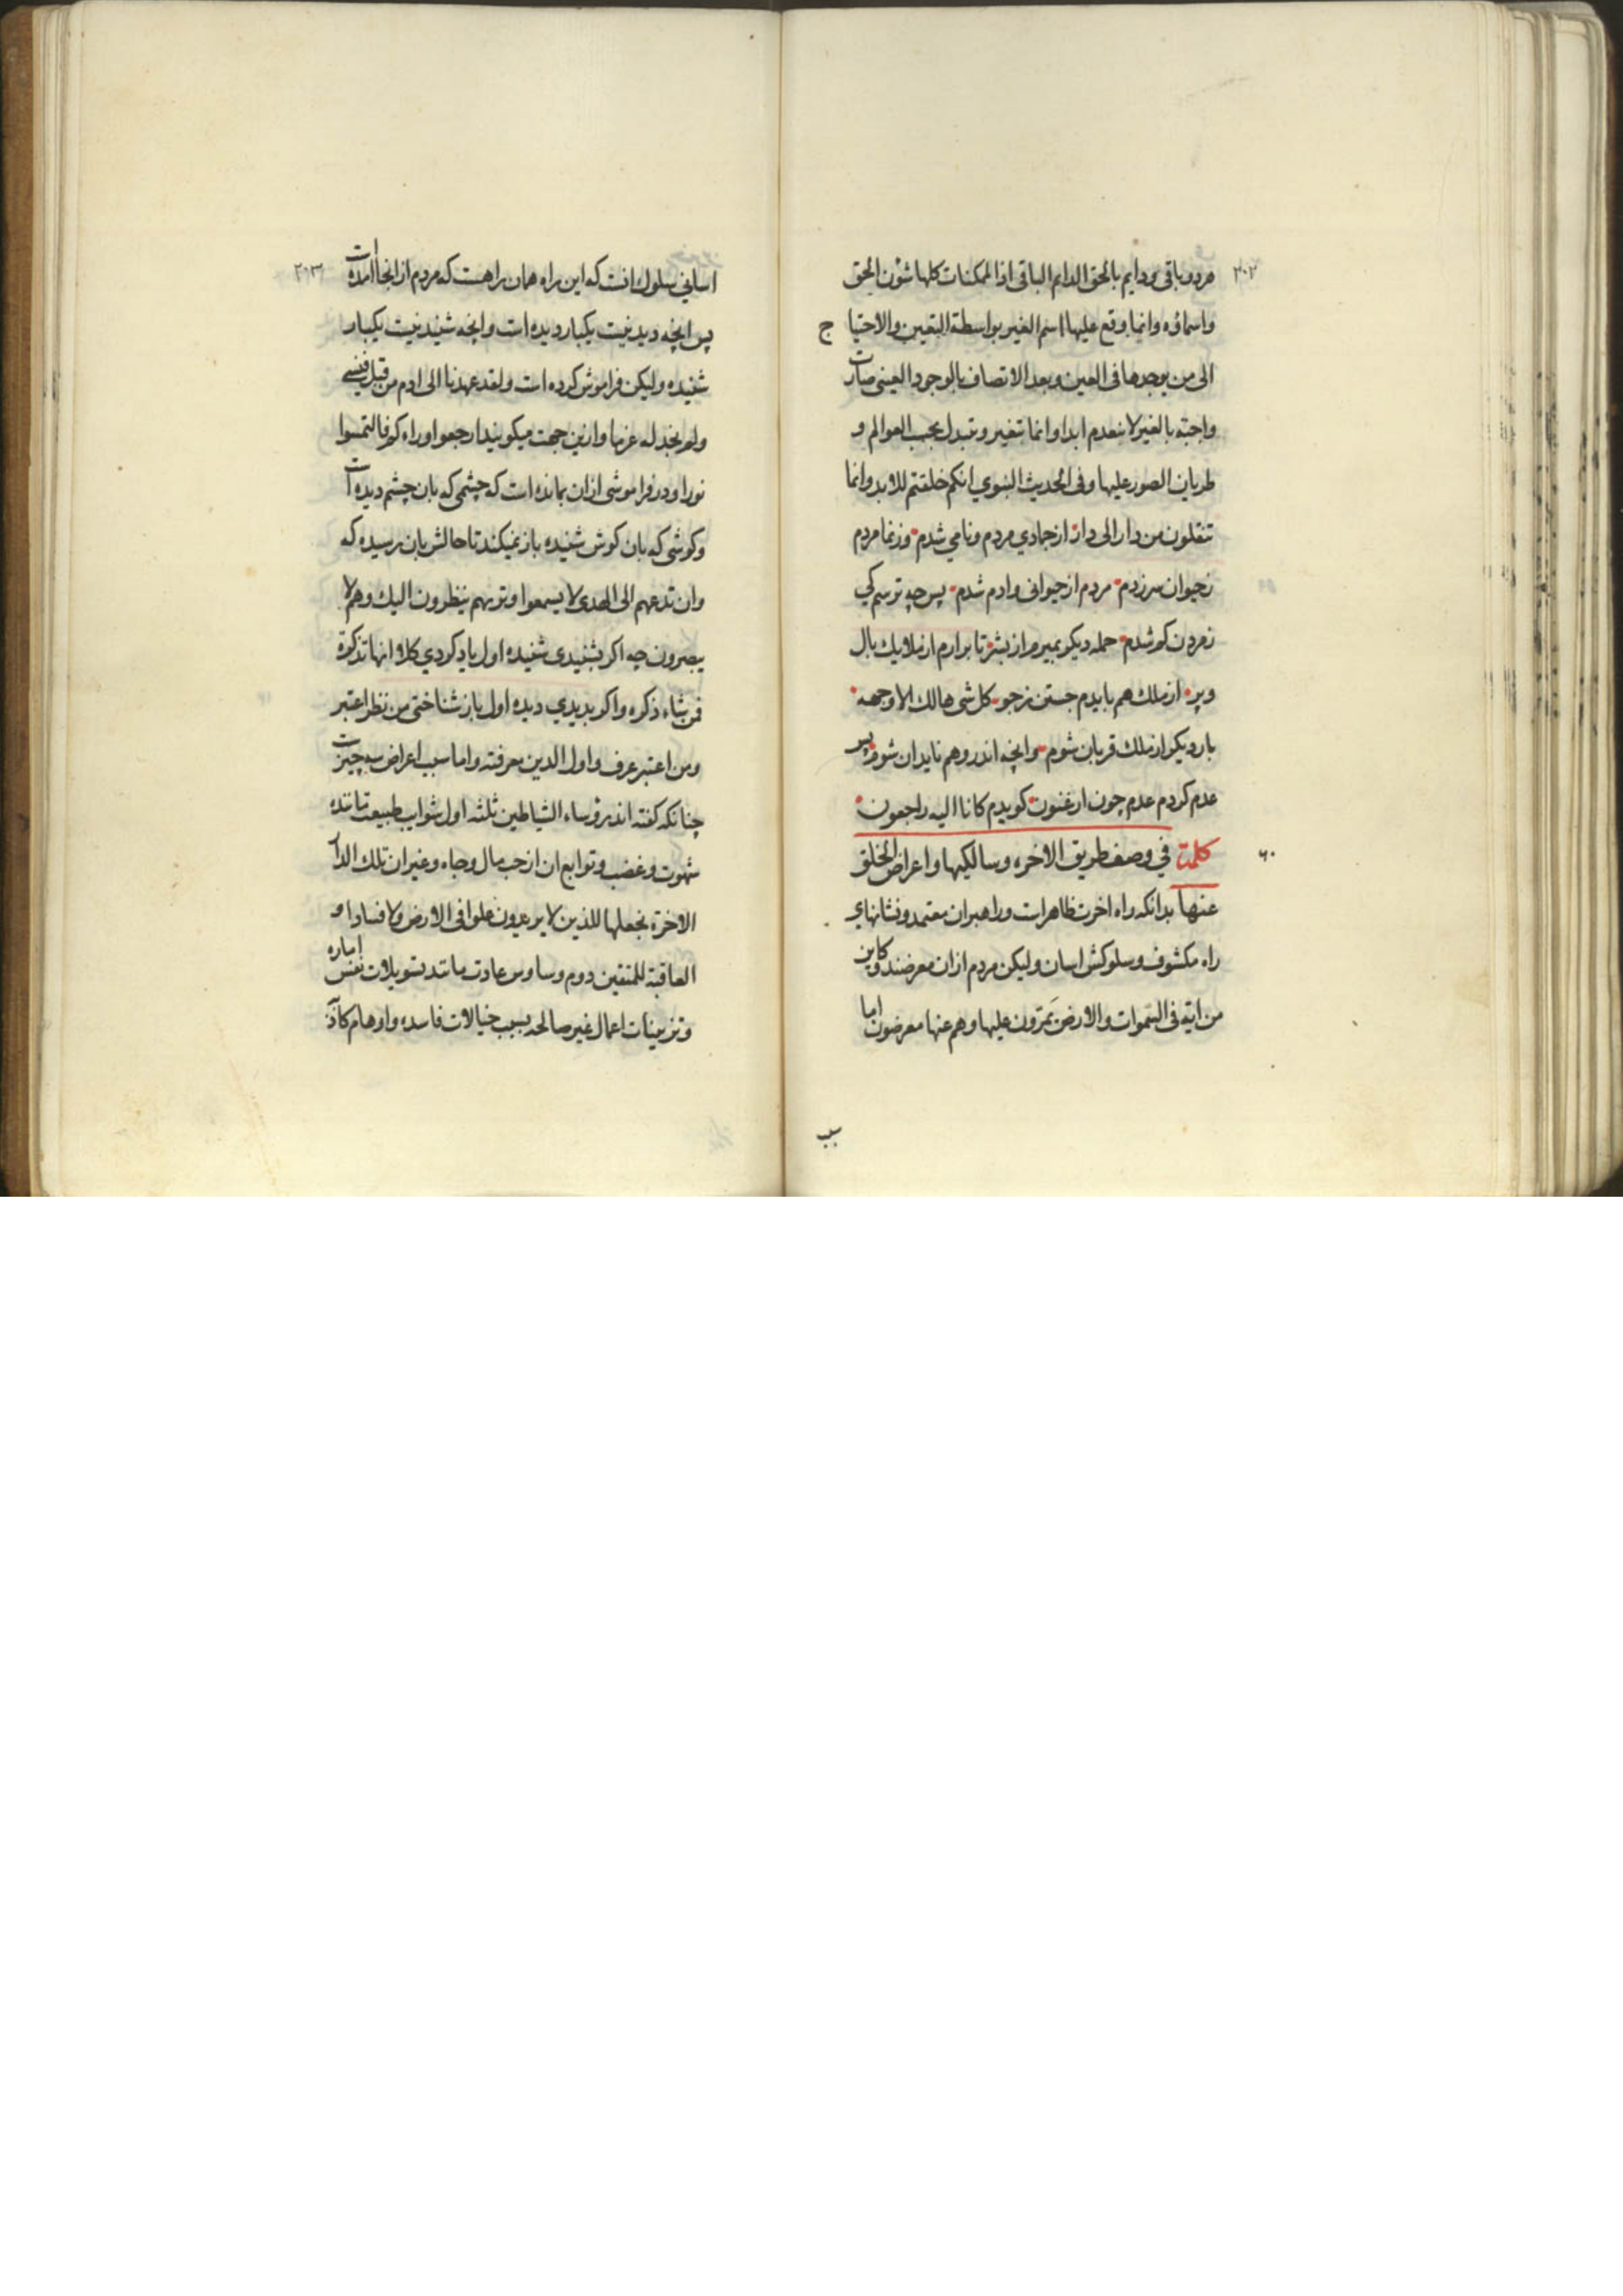 ۲۰۲
مردو باقی و دایم بالحق الدایم الباقی اذ الممکنات کلها شؤن الحق
واسماؤه وانما وقع علیها اسم الغیر بواسطة التعین والاحتیا ج
الی من یوجدها فی العین وبعد الاتصاف بالوجود العینی صارت
واجبة بالغیر لا ینعدم ابدا وانما تتغیر وتتبدل بحسب العوالم و
طریان الصور علیها وفی الحدیث النبوي انکم خلقتم للابد وانما
تنقلون من دار الی دار از جمادي مردم و نامی شدم وز نما مردم
زحیوان سرزدم مردم از حیوانی و ادم شدم پس چه ترسم کی
ز مردن کم شدم حمله دیکر بمیرم از بشر تا برارم از ملایک بال
و پر از ملک هم بایدم جستن ز جو کل شی هالک الا وجهه
بار دیکر از ملک قربان شوم وانچه اندر وهم ناید ان شوم پس
عدم کردم عدم چون ارغنون کویدم کانا الیه راجعون
کلمة في وصف طریق الاخره وسالکیها واعراض الخلق
۶۰
عنها بدانکه راه اخرت ظاهرات و راهبران معتمد و نشانهاي
راه مکشوف و سلوکش اسان ولیکن مردم از ان معرضند وکاین
من ایة فی السموات والارض یمرون علیها وهم عنها معرضون اما
سبب
۲۰۳
اسانی سلوك انست که این راه همان راهست که مردم از انجا امده ات
پس انچه دیدنیت یکبار دیده ات وانچه شنیدنیت یکبار
شنیده ولیکن فراموش کرده ات ولقد عهدنا الی ادم من قبل فنسی
ولم نجد له عزما وازین جهت میکویند ارجعوا وراءکم فالتمسوا
نورا و در فراموشی از ان بمانده ات که چشمی که بان چشم دیده ات
وکوشی که بان کوش شنیده باز نمیکند تا حالش بان رسیده که
وان تدعهم الی الهدی لا یسمعوا وتریهم ینظرون الیك وهم لا
یبصرون چه اکر بشنیدی شنیده اول یاد کردي کلا انها تذکرة
فمن شاء ذکره و اکر بدیدي دیده اول باز شناختی من نظر اعتبر
ومن اعتبر عرف واول الدین معرفته واما سبب اعراض سه چیزت
چنانکه کفته اند رؤساء الشیاطین ثلثه اول شوایب طبیعت مانند
شهوت وغضب وتوابع ان از حب مال وجاه وغیر ان تلك الدار
الاخرة نجعلها للذین لا یریدون علوا فی الارض ولا فسادا و
العاقبة للمتقین دوم وساوس عادت مانند تسویلات نفس اماره
وتزیینات اعمال غیر صالحه بسبب خیالات فاسده و اوهام کاذبه